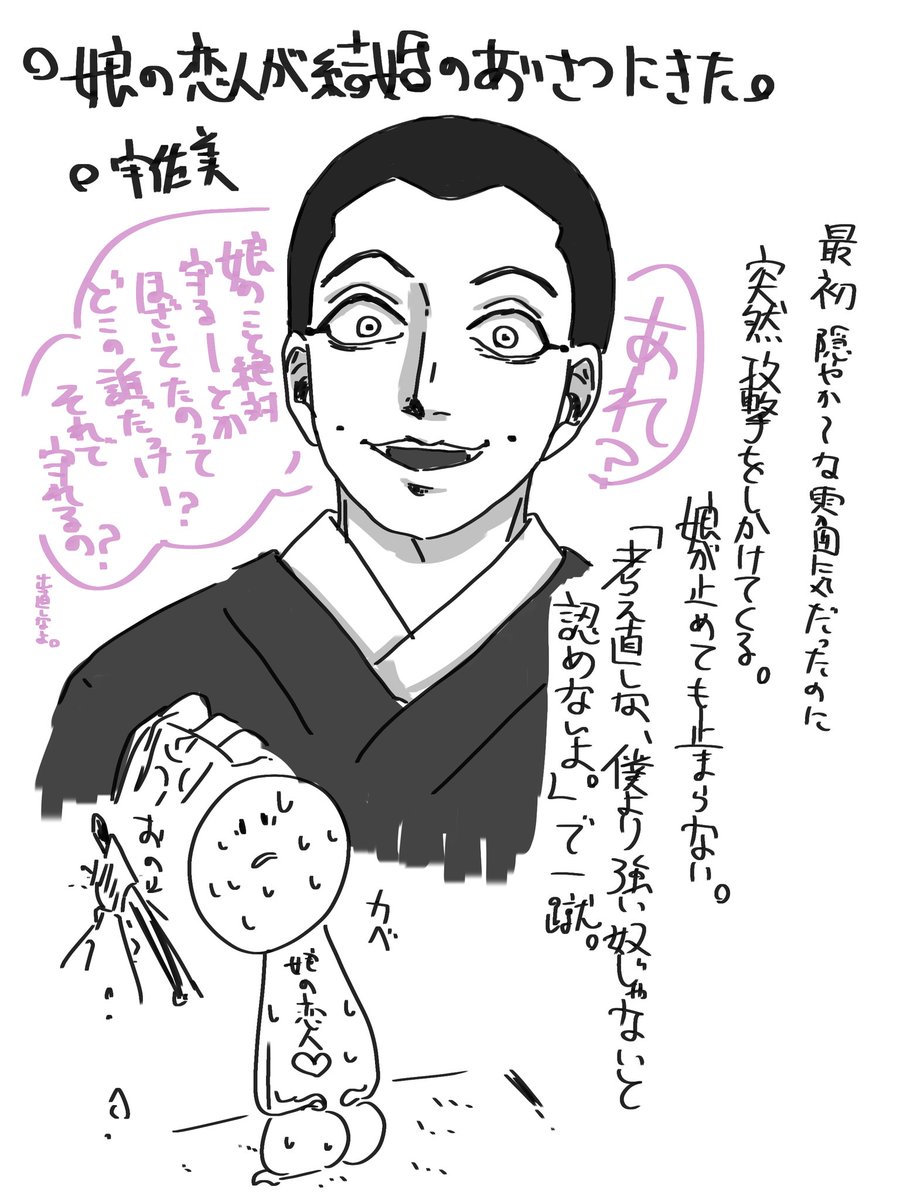 娘の恋人が結婚のあいさつにきた。
宇佐美
最初 隠やか〜な雰囲気だったのに
突然 攻撃をしかけてくる。
娘が止めても止まらない。
「考え直しな、僕より強い奴じゃないと
認めないよ。」で一蹴。
あれ?
娘のこと絶対
守るーとか
ほざいてたのって
どこの誰だっけー?
それで
守れるの?
出直しなよ。
おのに
カベ
娘の恋人♡